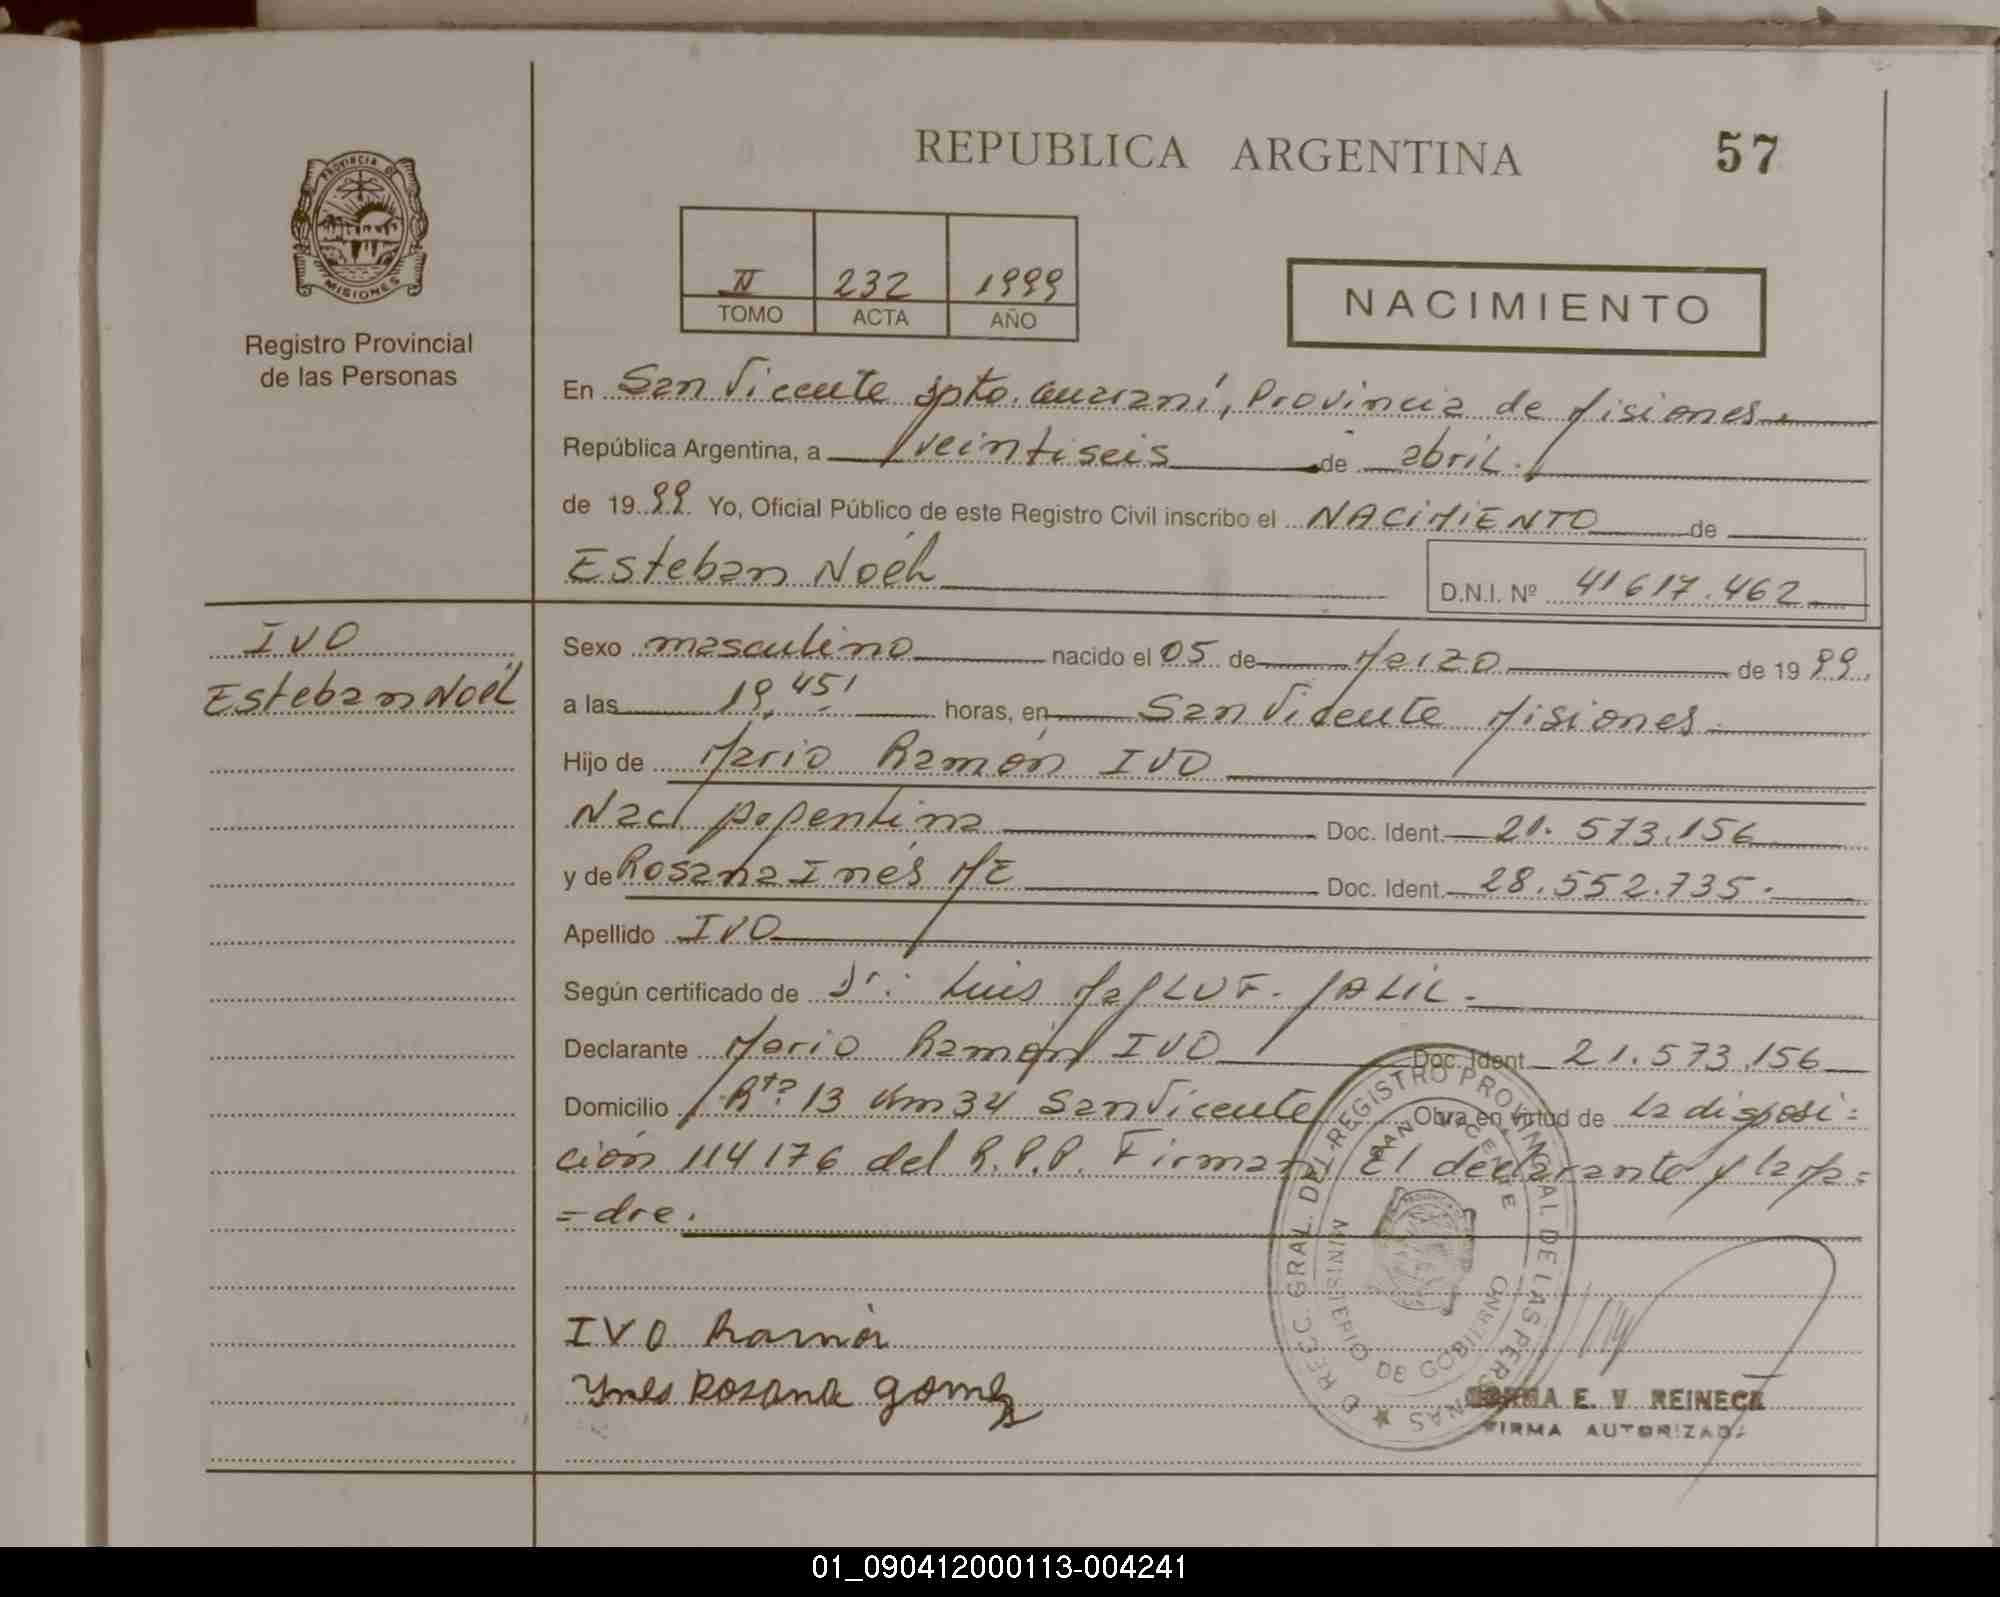 REPUBLICA ARGENTINA
57
PROVINCIA DE
MISIONES
Registro Provincial
de las Personas
II 232 1999
TOMO ACTA AÑO
NACIMIENTO
En San Vicente Dpto. Guaraní, Provincia de Misiones.
República Argentina, a veintiseis de abril.
de 1999. Yo, Oficial Público de este Registro Civil inscribo el NACIMIENTO de
Esteban Noél
D.N.I. Nº 41617.462
IVO
Esteban Noél
Sexo masculino nacido el 05 de Marzo de 1999.
a las 19,45' horas, en San Vicente Misiones.
Hijo de Mario Ramón IVO
Nac. Argentina Doc. Ident. 21.573.156
y de Rosana Inés Doc. Ident. 28.552.735.
Apellido IVO
Según certificado de Dr. Luis JALIL.
Declarante Mario Ramón IVO Doc. Ident. 21.573.156
Domicilio Rta 13 Km 34 San Vicente Obra en virtud de la disposi=
ción 114176 del R.P.P. Firman El declarante y la Ma=
=dre.
IVO Ramón
Ynes Rosana gomez
REGISTRO PROVINCIAL DE LAS PERSONAS
SAN VICENTE
MINISTERIO DE GOBIERNO
E. V. REINECK
FIRMA AUTORIZADA
01_090412000113-004241